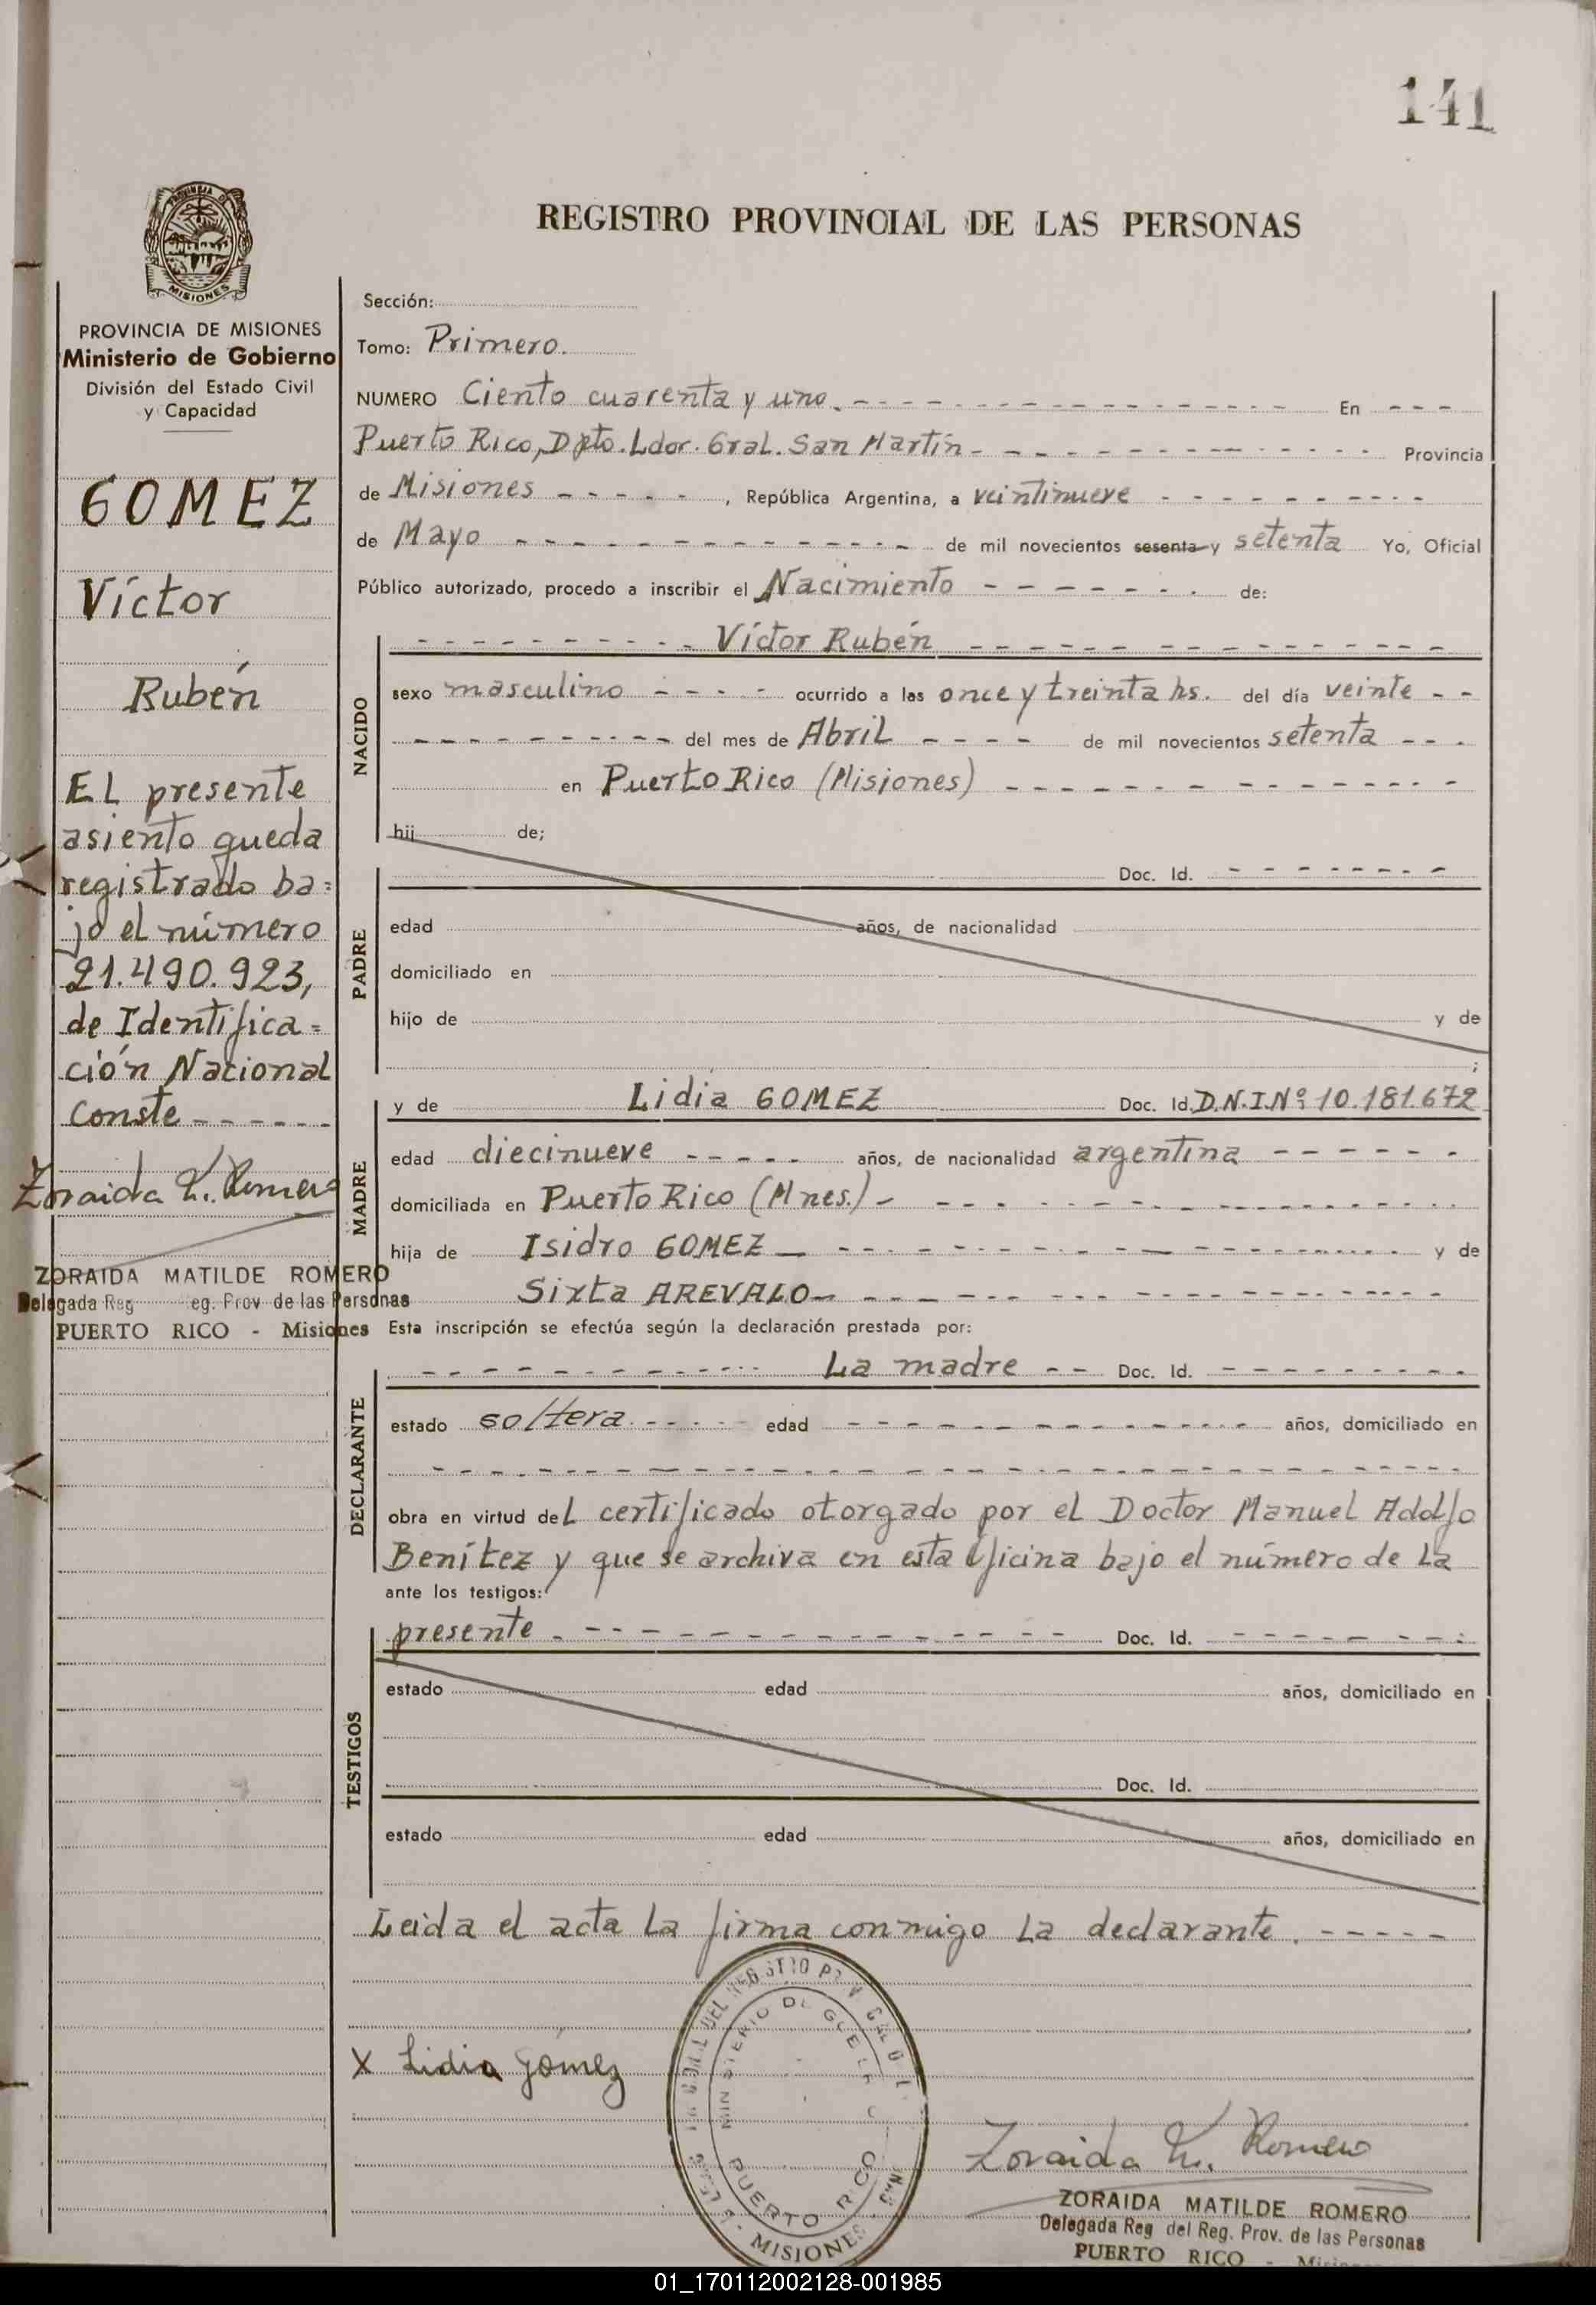 141
REGISTRO PROVINCIAL DE LAS PERSONAS
PROVINCIA DE MISIONES
Ministerio de Gobierno
División del Estado Civil
y Capacidad
GOMEZ
Víctor
Rubén
EL presente
asiento queda
registrado ba=
jo el número
21.490.923,
de Identifica=
ción Nacional
Conste
Zoraida M. Romero
ZORAIDA MATILDE ROMERO
Delegada Reg eg. Prov de las Personas
PUERTO RICO - Misiones
Sección:
Tomo: Primero.
NUMERO Ciento cuarenta y uno. En
Puerto Rico, Dpto. Ldor. Gral. San Martín Provincia
de Misiones , República Argentina, a veintinueve
de Mayo de mil novecientos sesenta y setenta Yo, Oficial
Público autorizado, procedo a inscribir el Nacimiento de:
NACIDO
Víctor Rubén
sexo masculino ocurrido a las once y treinta hs. del día veinte
del mes de Abril de mil novecientos setenta
en Puerto Rico (Misiones)
hij de;
PADRE
Doc. Id.
edad años, de nacionalidad
domiciliado en
hijo de y de
;
MADRE
y de Lidia GOMEZ Doc. Id. D.N.I.Nº 10.181.672
edad diecinueve años, de nacionalidad argentina
domiciliada en Puerto Rico (Mnes.)
hija de Isidro GOMEZ y de
Sixta AREVALO
Esta inscripción se efectúa según la declaración prestada por:
DECLARANTE
La madre Doc. Id.
estado soltera edad años, domiciliado en
obra en virtud del certificado otorgado por el Doctor Manuel Adolfo
Benítez y que se archiva en esta Oficina bajo el número de La
ante los testigos:
TESTIGOS
presente. Doc. Id.
estado edad años, domiciliado en
Doc. Id.
estado edad años, domiciliado en
Leida el acta La firma conmigo La declarante.
X Lidia Gómez
PUERTO RICO
MISIONES
Zoraida M. Romero
ZORAIDA MATILDE ROMERO
Delegada Reg del Reg. Prov. de las Personas
PUERTO RICO -
01_170112002128-001985